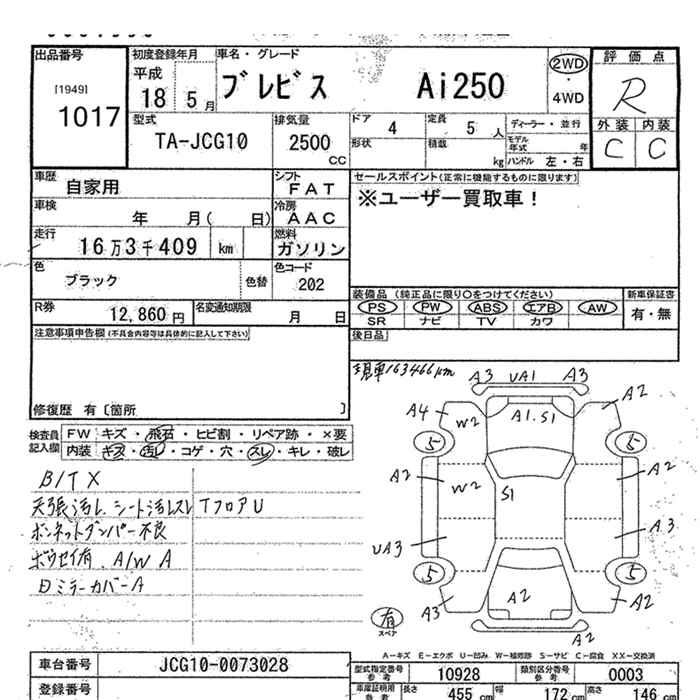 出品番号 初度登録年月 車名・グレード 評価点
[1949] 1017
平成 18 5月 ブレビス Ai250 2WD・4WD R
外装 内装
C C
型式 TA-JCG10 排気量 2500 CC ドア 4 形状 定員 5 人 積載 kg ディーラー・並行
モデル年式 年
ハンドル 左・右
車歴 自家用 シフト FAT セールスポイント(正常に機能するものに限ります)
※ユーザー買取車!
車検 年 月( 日) 冷房 AAC
走行 16万3千409 km 燃料 ガソリン
色 ブラック 色替 色コード 202
装備品 (純正品に限り○をつけてください) 新車保証書
PS PW ABS エアB AW 有・無
SR ナビ TV カワ
R券 12,860円 名変通知期限 月 日
注意事項申告欄(不具合内容等は具体的に記入して下さい) 後日品
現車163466km
修復歴 有〔箇所 〕
検査員記入欄 FW キズ・飛石・ヒビ割・リペア跡・×要
内装 キズ・汚レ・コゲ・穴・スレ・キレ・破レ
B/TX
天張汚レ、シート汚レスレ TフロアU
ボンネットダンパー不良
ボウセイ有、A/W A
日ミラーカバーA
A3 UA1 A3
A4 W2 A1.S1 A2
5 5
A2 W2 S1 A2
UA3 A3
5 5
A3 A2 A2
A2
有
スペア
A-キズ E-エクボ U-凹み W-補修跡 S-サビ C-腐食 XX-交換済
車台番号 JCG10-0073028 型式指定番号参考 10928 類別区分番号参考 0003
登録番号 車庫証明用参考 長さ 455 cm 幅 172 cm 高さ 146 cm